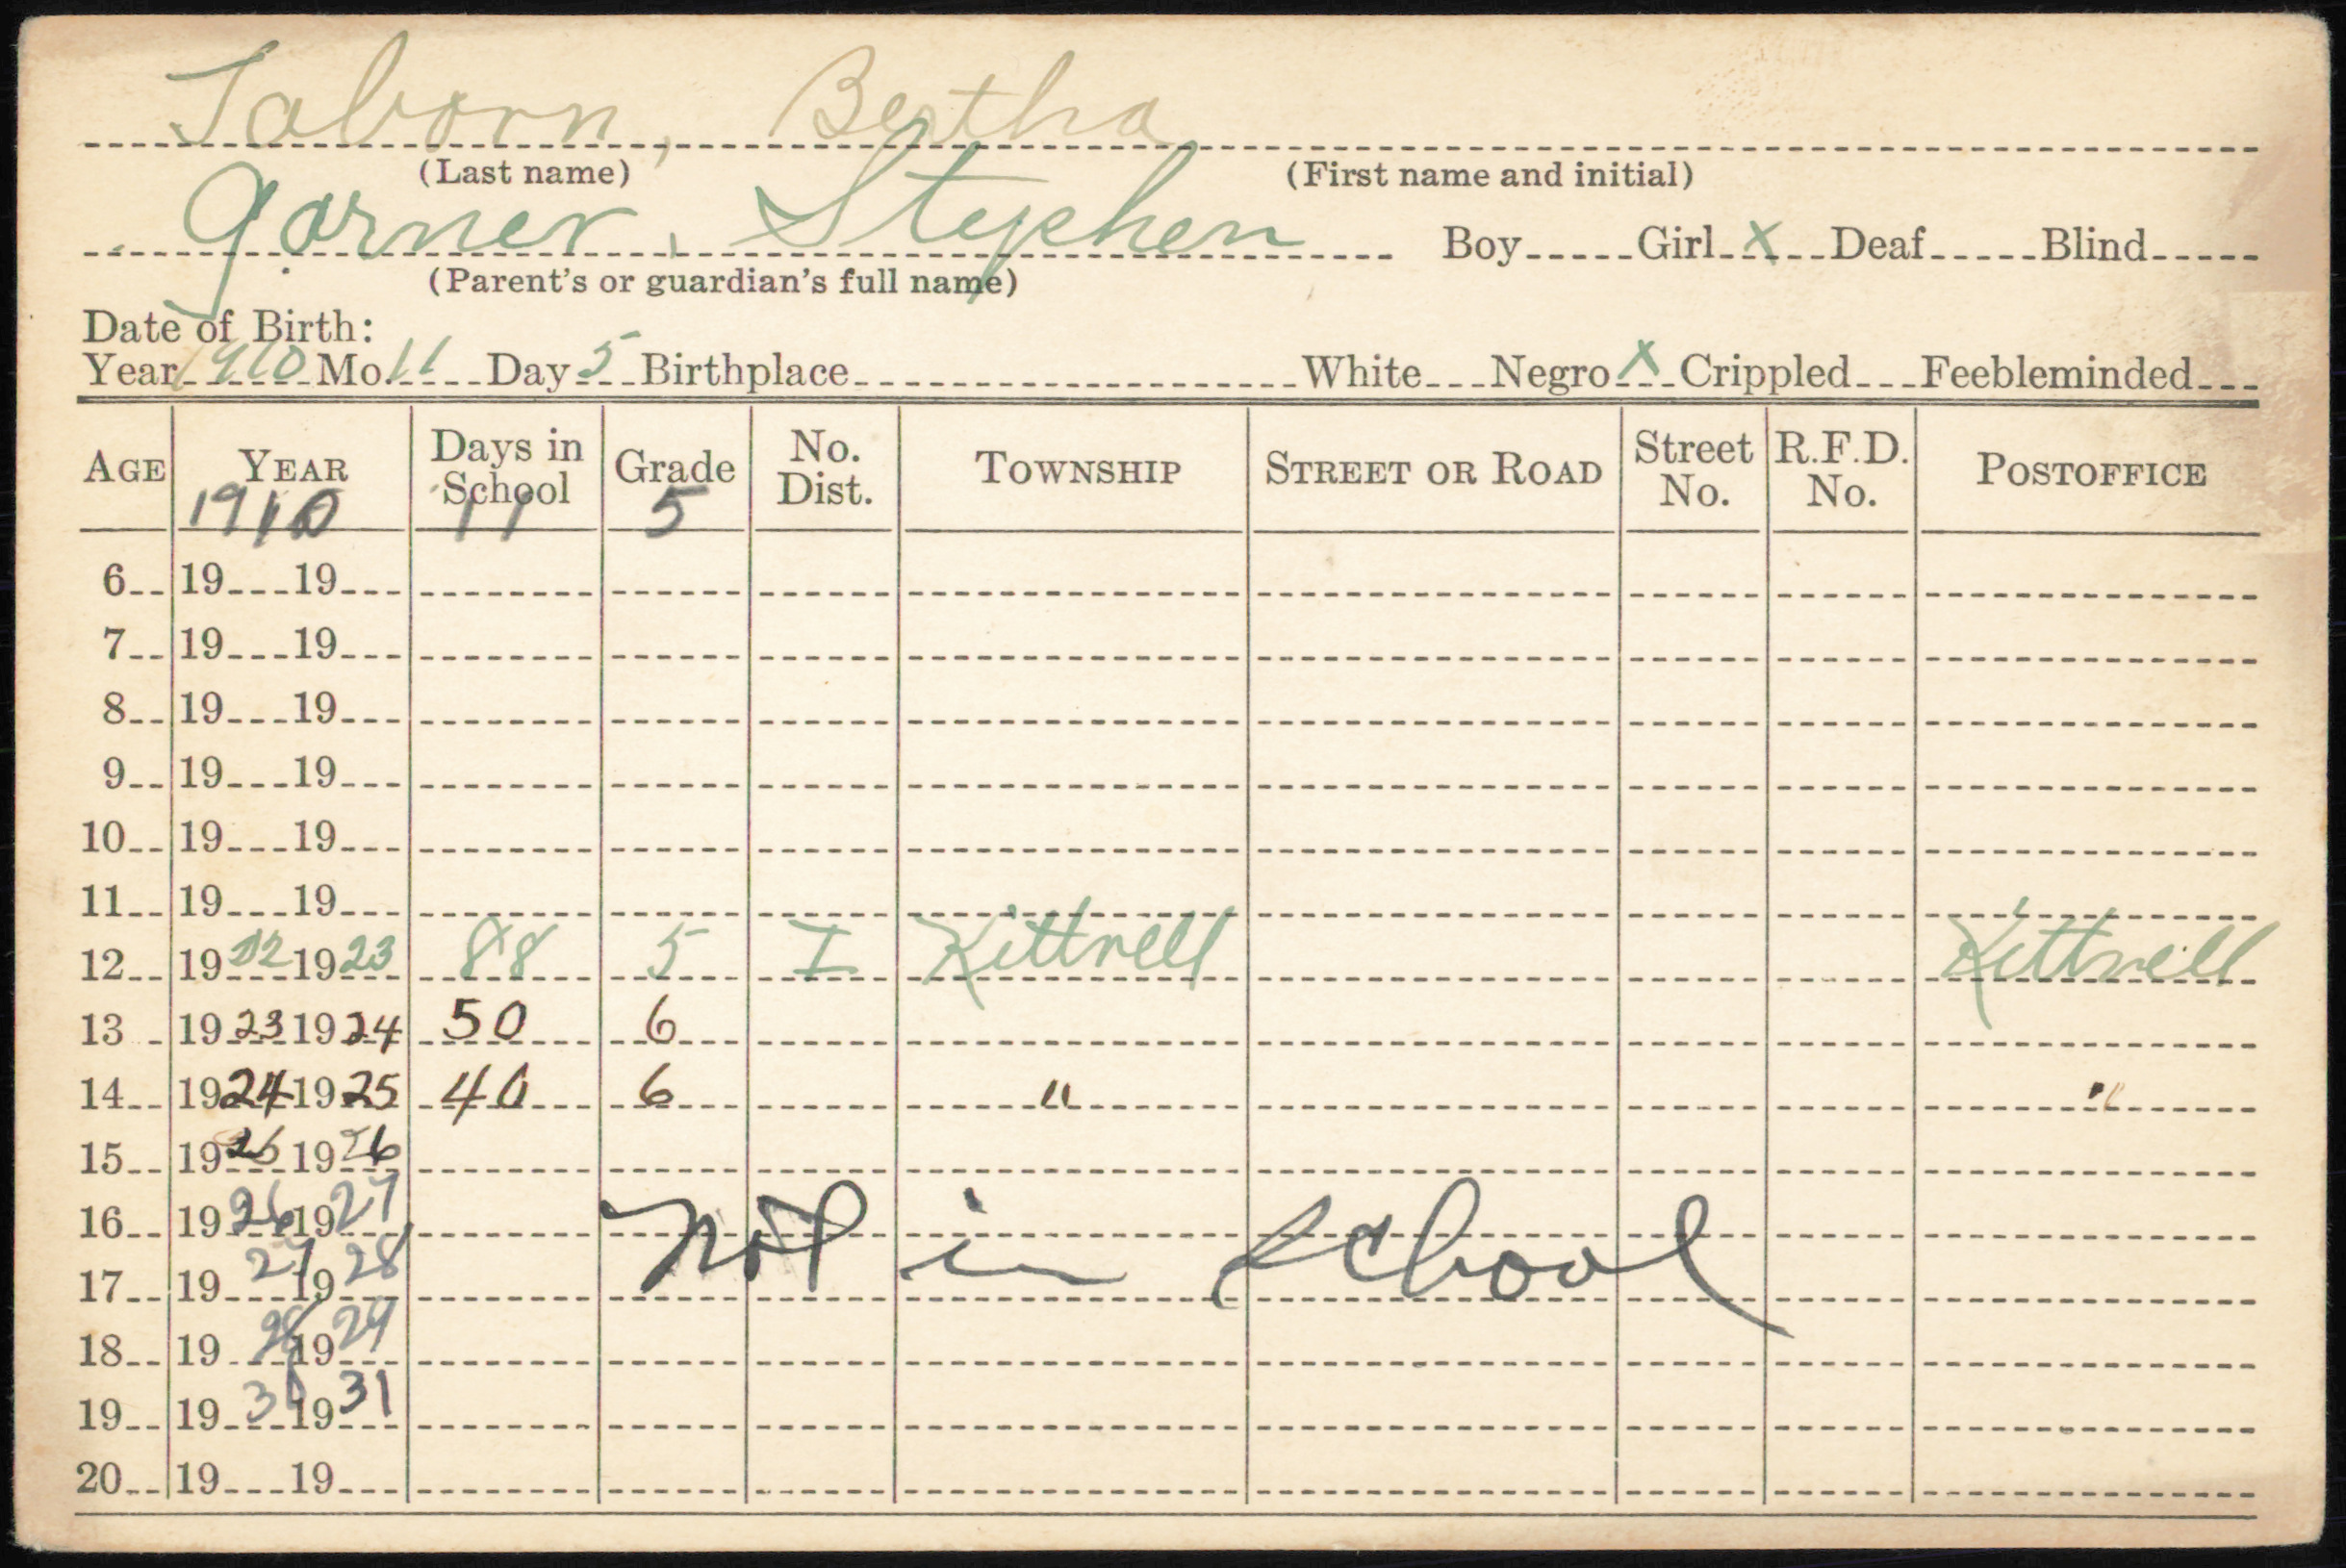 Taborn, Bertha
(Last name) (First name and initial)
Garner, Stephen Boy Girl X Deaf Blind
(Parent's or guardian's full name)
Date of Birth:
Year 1910 Mo. 11 Day 5 Birthplace White Negro X Crippled Feebleminded
AGE YEAR Days in School Grade No. Dist. TOWNSHIP STREET OR ROAD Street No. R.F.D. No. POSTOFFICE
1910 11 5
6 19 19
7 19 19
8 19 19
9 19 19
10 19 19
11 19 19
12 1922 1923 88 5 I Kittrell Kittrell
13 1923 1924 50 6
14 1924 1925 40 6 " "
15 1925 1926
16 1926 1927 Not in school
17 1927 1928
18 1928 1929
19 1930 1931
20 19 19